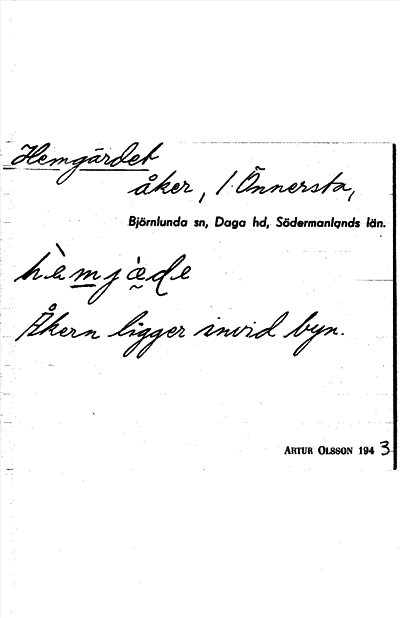 Hemgärdet
åker, / Önnersta,
Björnlunda sn, Daga hd, Södermanlands län.
hèmjæ̀de
Åkern ligger invid byn.
ARTUR OLSSON 1943